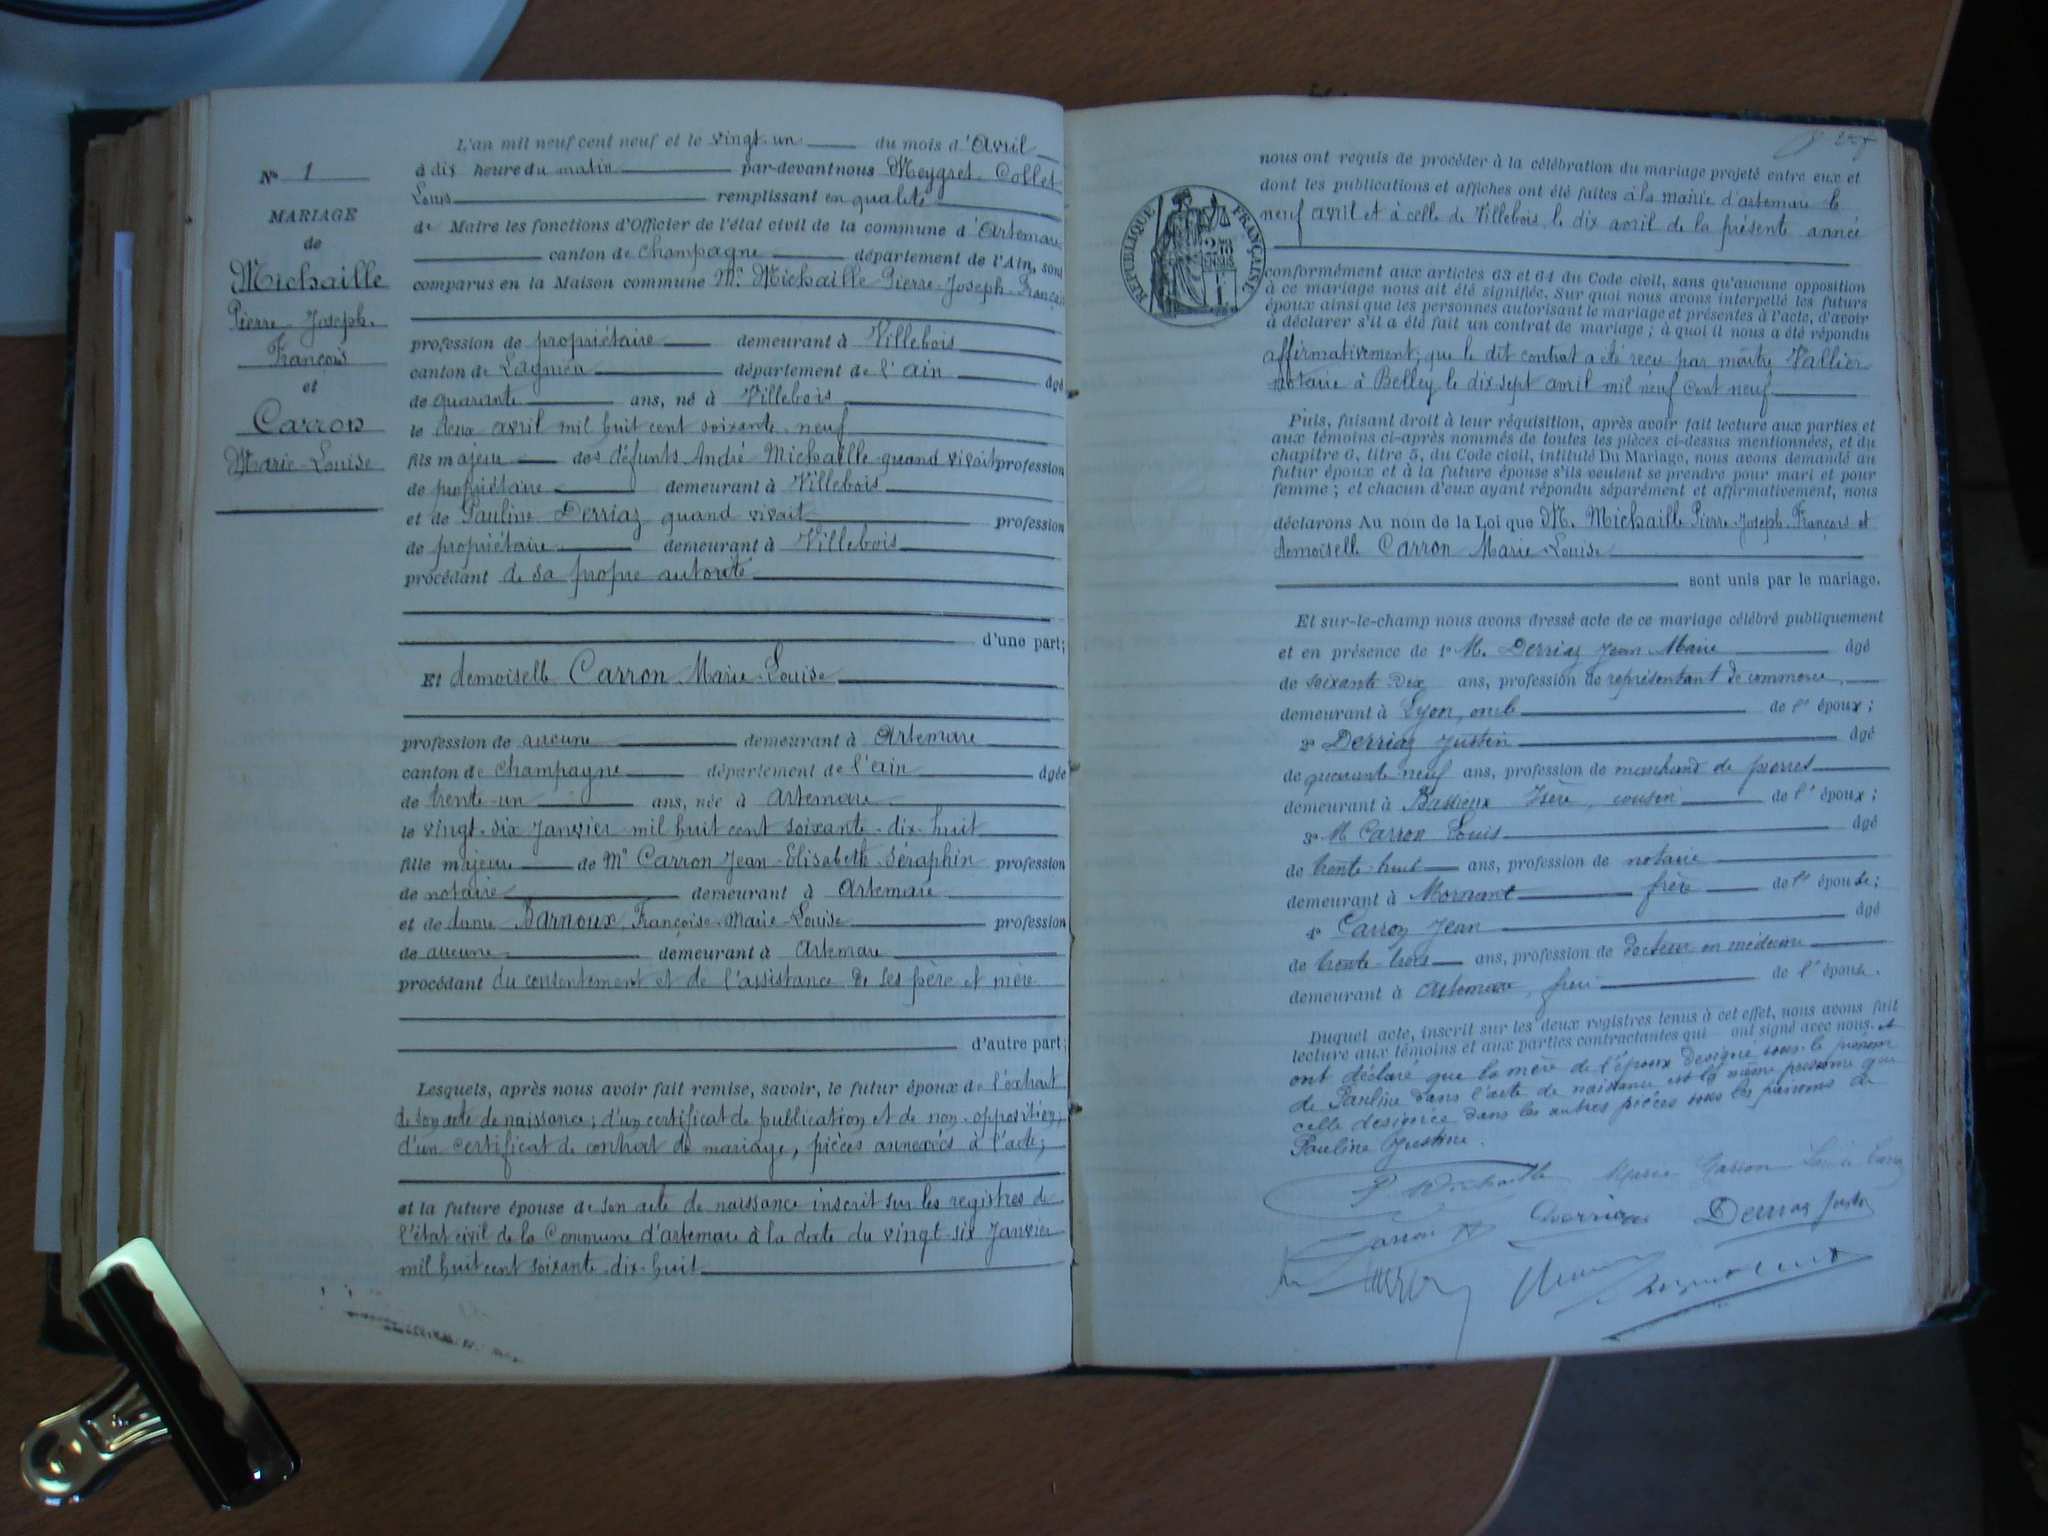 N° 1
MARIAGE
de
Michaille
Pierre-Joseph-
François
et
Carron
Marie-Louise
L'an mil neuf cent neuf et le vingt-un du mois d'Avril
à dix heure du matin par-devant nous Meygret-Collet
Louis remplissant en qualité
de Maire les fonctions d'Officier de l'état civil de la commune d'Artemare
canton de Champagne département de l'Ain, sont
comparus en la Maison commune Mr. Michaille Pierre-Joseph-François
profession de propriétaire demeurant à Villebois
canton de Lagnieu département de l'ain âgé
de quarante ans, né à Villebois
le deux avril mil huit cent soixante-neuf
fils majeur des défunts André Michaille quand vivait profession
de propriétaire demeurant à Villebois
et de Pauline Derriaz quand vivait profession
de propriétaire demeurant à Villebois
procédant de sa propre autorité
d'une part;
Et demoiselle Carron Marie-Louise
profession de aucune demeurant à Artemare
canton de Champagne département de l'ain âgée
de trente-un ans, née à Artemare
le vingt-six Janvier mil huit cent soixante-dix-huit
fille majeure de Mr Carron Jean-Elisabeth-Séraphin profession
de notaire demeurant à Artemare
et de dame Barnoux Françoise-Marie-Louise profession
de aucune demeurant à Artemare
procédant du consentement et de l'assistance de ses père et mère
d'autre part;
Lesquels, après nous avoir fait remise, savoir, le futur époux de l'extrait
de son acte de naissance; d'un certificat de publication et de non-opposition;
d'un certificat de contrat de mariage, pièces annexées à l'acte;
et la future épouse de son acte de naissance inscrit sur les registres de
l'état civil de la Commune d'artemare à la date du vingt-six Janvier
mil huit cent soixante-dix-huit
RÉPUBLIQUE FRANÇAISE
nous ont requis de procéder à la célébration du mariage projeté entre eux et
dont les publications et affiches ont été faites à la mairie d'artemare le
neuf avril et à celle de Villebois le dix avril de la présente anné
conformément aux articles 63 et 64 du Code civil, sans qu'aucune opposition
à ce mariage nous ait été signifiée. Sur quoi nous avons interpellé les futurs
époux ainsi que les personnes autorisant le mariage et présentes à l'acte, d'avoir
à déclarer s'il a été fait un contrat de mariage; à quoi il nous a été répondu
affirmativement, que le dit contrat a été reçu par maître Vallier
notaire à Belley le dix sept avril mil neuf cent neuf
Puis, faisant droit à leur réquisition, après avoir fait lecture aux parties et
aux témoins ci-après nommés de toutes les pièces ci-dessus mentionnées, et du
chapitre 6, titre 5, du Code civil, intitulé Du Mariage, nous avons demandé au
futur époux et à la future épouse s'ils veulent se prendre pour mari et pour
femme; et chacun d'eux ayant répondu séparément et affirmativement, nous
déclarons Au nom de la Loi que M. Michaille Pierre-Joseph-François et
demoiselle Carron Marie-Louise
sont unis par le mariage.
Et sur-le-champ nous avons dressé acte de ce mariage célébré publiquement
et en présence de 1° M. Derriaz Jean Marie âgé
de soixante-dix ans, profession de représentant de commerce
demeurant à Lyon, oncle de l'époux;
2° Derriaz Justin âgé
de quarante-neuf ans, profession de marchand de pierres
demeurant à Isère, cousin de l'époux;
3° M Carron Louis âgé
de trente-huit ans, profession de notaire
demeurant à Mornant frère de l'épouse;
4° Carron Jean âgé
de trente-trois ans, profession de docteur en médecine
demeurant à Artemare, frère de l'épouse.
Duquel acte, inscrit sur les deux registres tenus à cet effet, nous avons fait
lecture aux témoins et aux parties contractantes qui ont signé avec nous. et
ont déclaré que la mère de l'époux designé sous le prénom
de Pauline dans l'acte de naissance est la même personne que
celle designée dans les autres pièces sous les prénoms de
Pauline Justine.
P. Michaille Marie Carron Louis Carron
Carron Derriaz Derriaz Justin